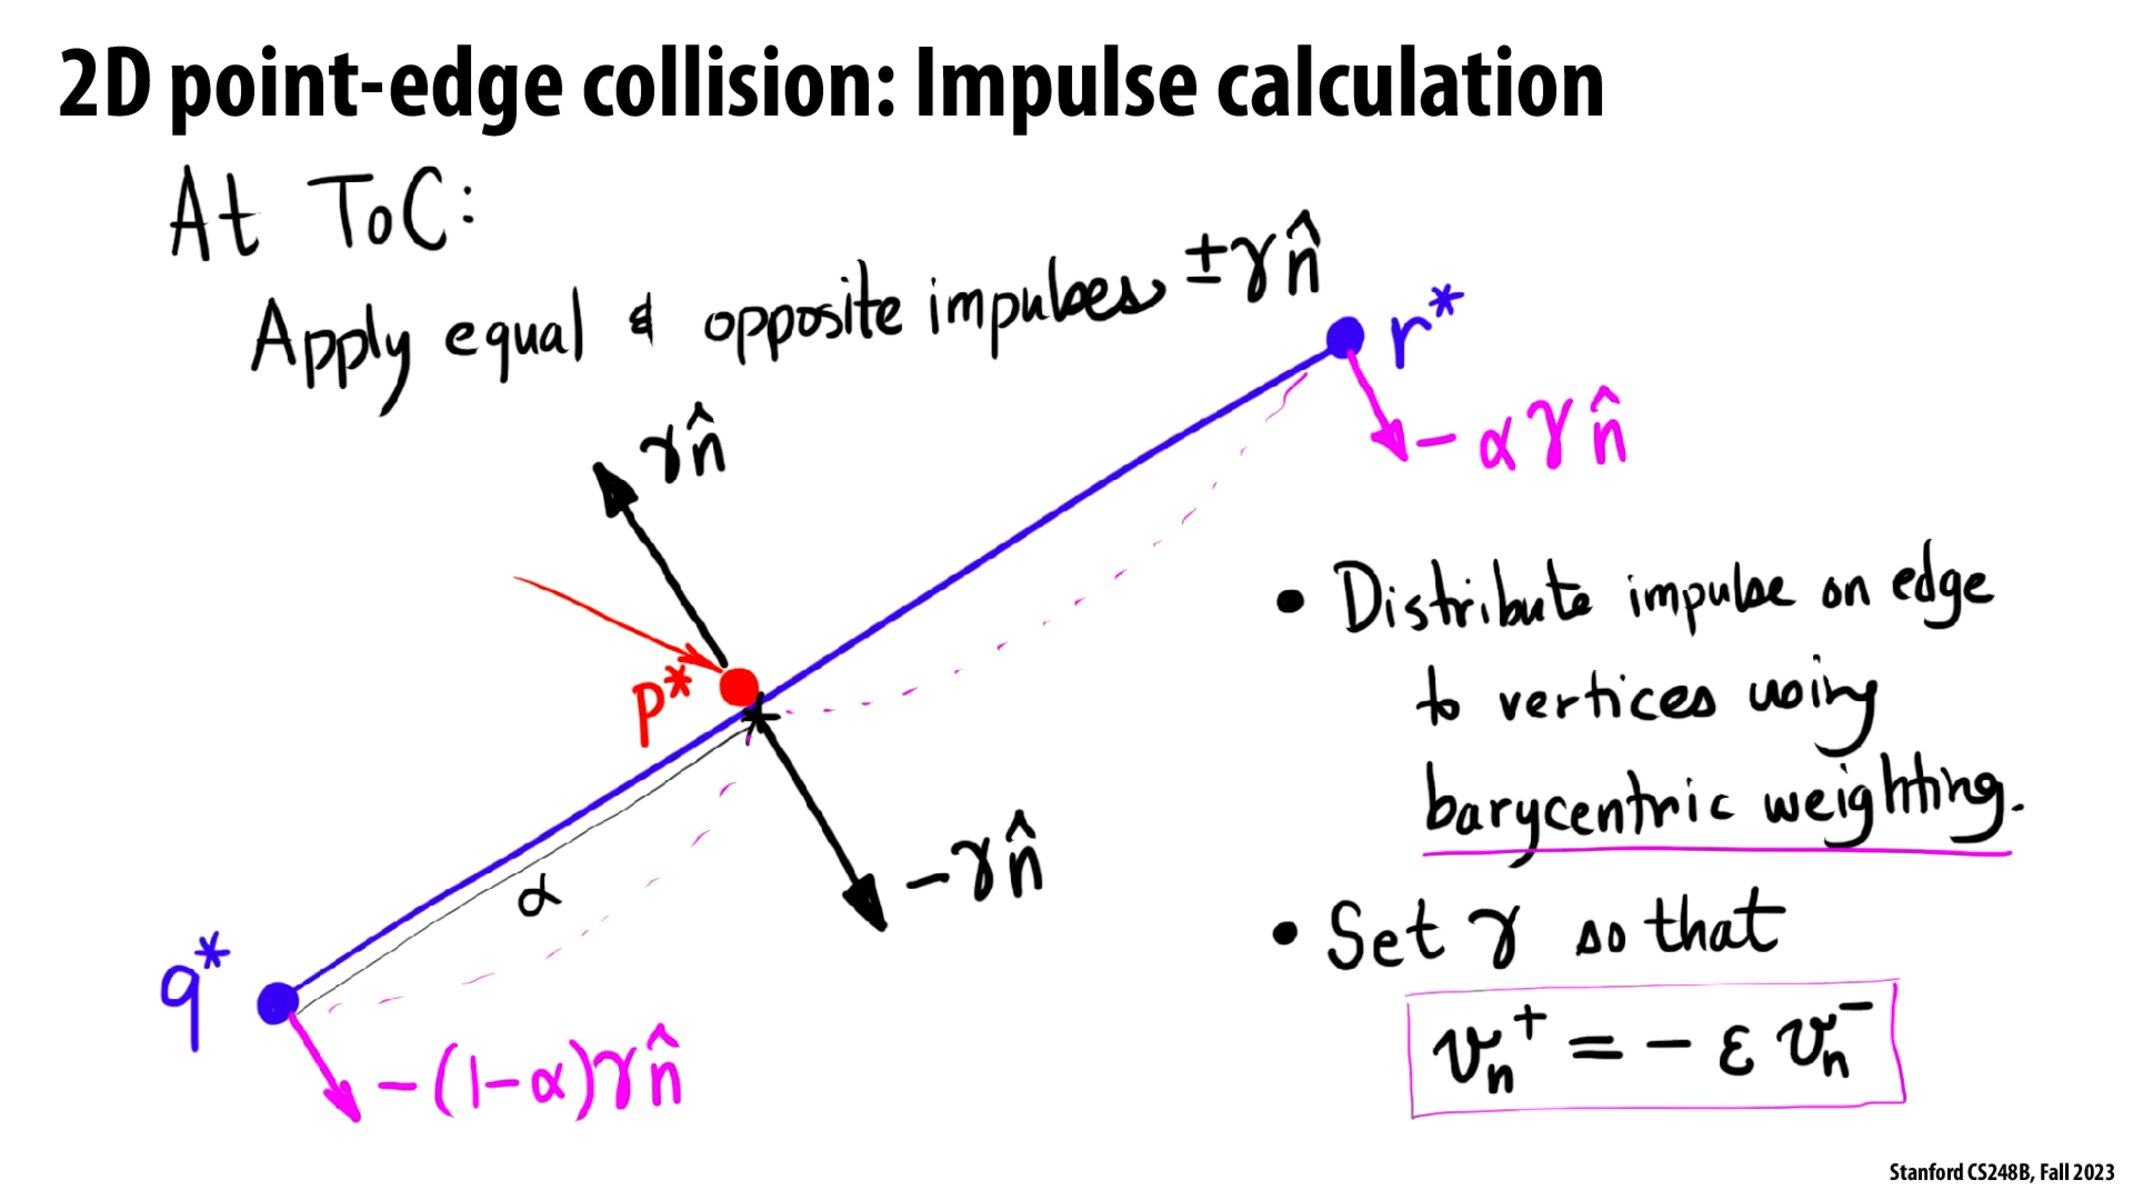 2D point-edge collision: Impulse calculation
At ToC:
Apply equal & opposite impulses ±γn̂
r*
-αγn̂
γn̂
p*
α
-γn̂
q*
-(1-α)γn̂
• Distribute impulse on edge
to vertices using
barycentric weighting.
• Set γ so that
vₙ⁺ = - ε vₙ⁻
Stanford CS248B, Fall 2023